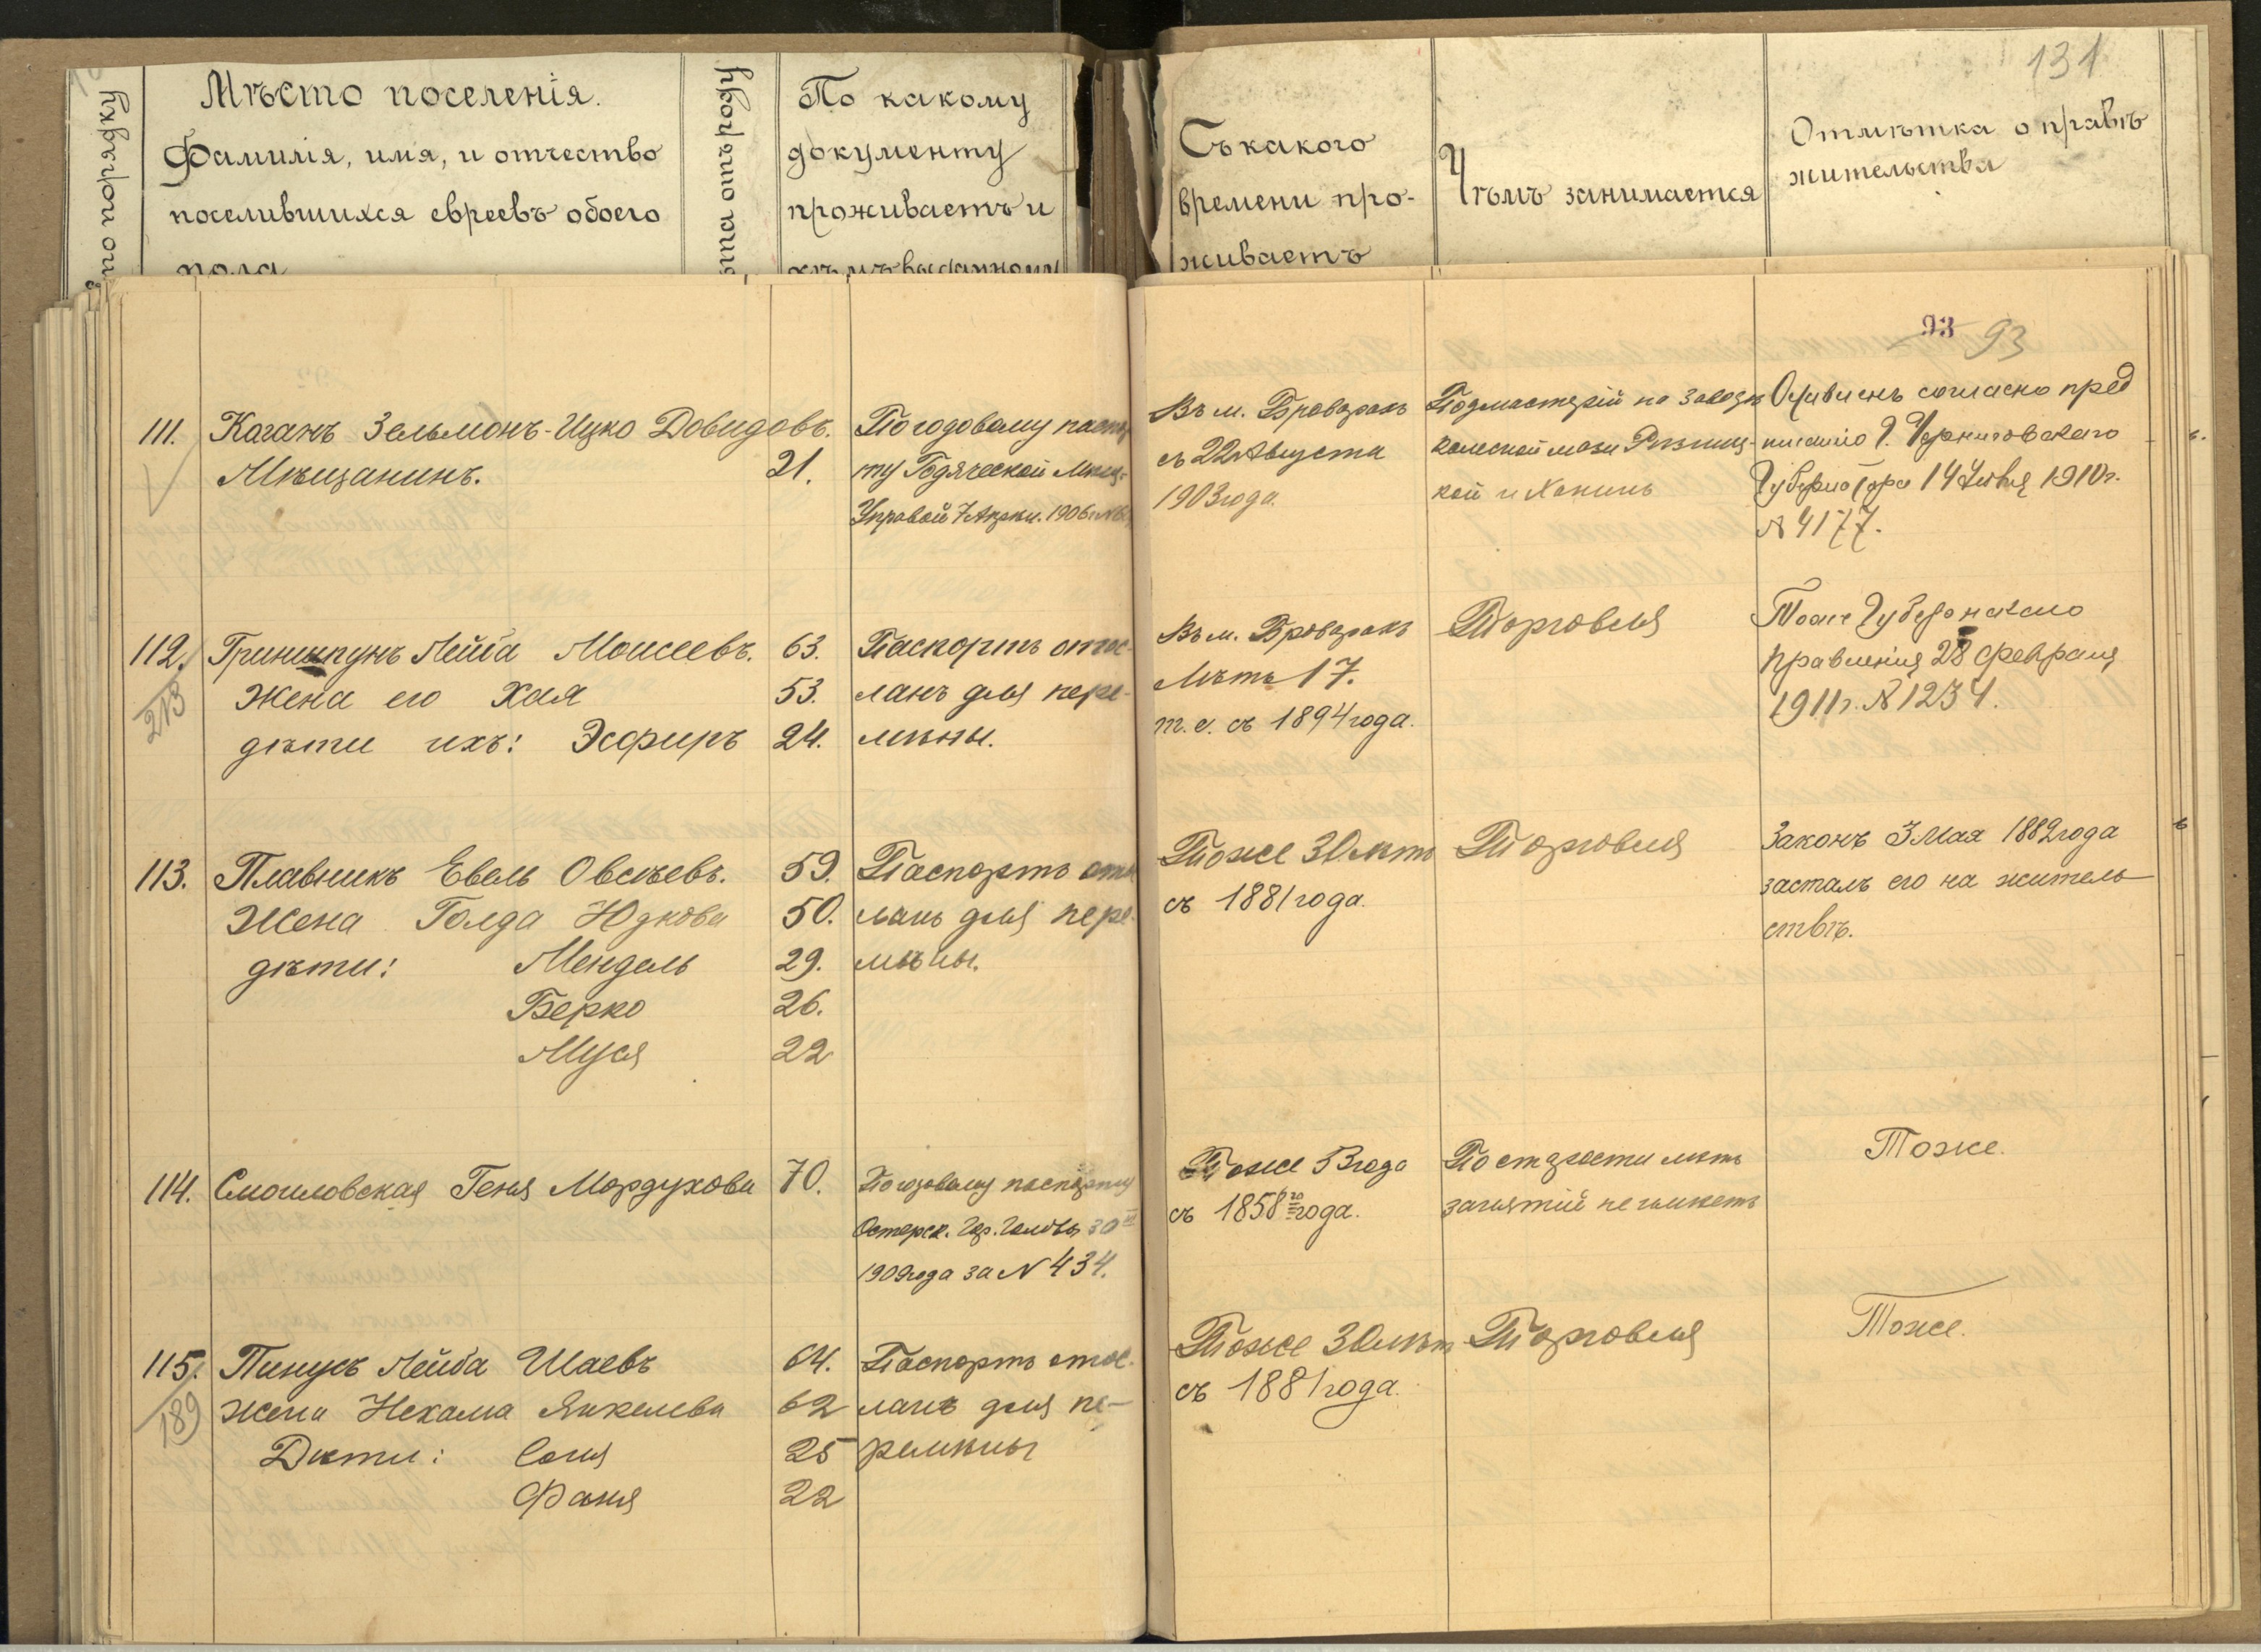 131
по порядку
Мѣсто поселенія.
Фамилія, имя, и отчество
поселившихся евреевъ обоего
пола
та отъ роду
По какому
документу
проживаетъ и
Съ какого
времени про-
живаетъ
Чѣмъ занимается
Отмѣтка о правѣ
жительства
93 93
111. Каганъ Зельмонъ-Ицко Довидовъ.
Мѣщанинъ. 21.
По годовому паспор
ту Годяческой Мѣщ.
Управой 7 Апрѣл. 1906г. №
Въ м. Броварахъ
съ 22 Августа
1903 года.
Подмастерій на заводѣ
колесной мази Рѣзниц-
кой и Хонинъ
Оставленъ согласно пред
писанію Г. Черниговскаго
Губернатора 14 Іюня 1910 г.
№ 4177.
112. Гриншпунъ Лейба Моисеевъ. 63.
Жена его Хая 53.
дѣти ихъ: Эсфирь 24.
213
Паспортъ отос-
ланъ для пере-
мѣны.
Въ м. Броварахъ
Лѣтъ 17.
т. е. съ 1894 года.
Торговля
Тоже Губернскаго
Правленія 28 Февраля
1911 г. № 1234.
113. Плавникъ Евель Овсѣевъ. 59.
Жена Голда Юдкова 50.
дѣти: Мендель 29.
Берко 26.
Муся 22
Паспортъ ото
ланъ для пере-
мѣны.
Тоже 30 лѣтъ
съ 1881 года.
Торговля
Законъ 3 Мая 1882 года
засталъ его на житель-
ствѣ.
114. Смоиловская Геня Мордухова 70.
По годовому паспорту
Остерск. Гор. Головы 30
1909 года за № 434.
Тоже 53 года
съ 1858 го года.
По старости лѣтъ
занятій не имѣетъ
Тоже.
115. Пинусъ Лейба Шаевъ 64.
жена Нехама Янкелева 62
Дѣти: Соня 25
Фаня 22
189
Паспортъ отос-
ланъ для пе-
ремѣны
Тоже 30 лѣт
съ 1881 года.
Торговля
Тоже.